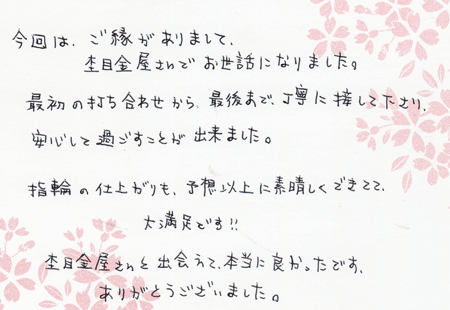 今回は、ご縁がありまして、
杢目金屋さんでお世話になりました。
最初の打ち合わせから、最後まで、丁寧に接して下さり、
安心して過ごすことが出来ました。
指輪の仕上がりも、予想以上に素晴しくできてて、
大満足です!!
杢目金屋さんと出会えて、本当に良かったです。
ありがとうございました。